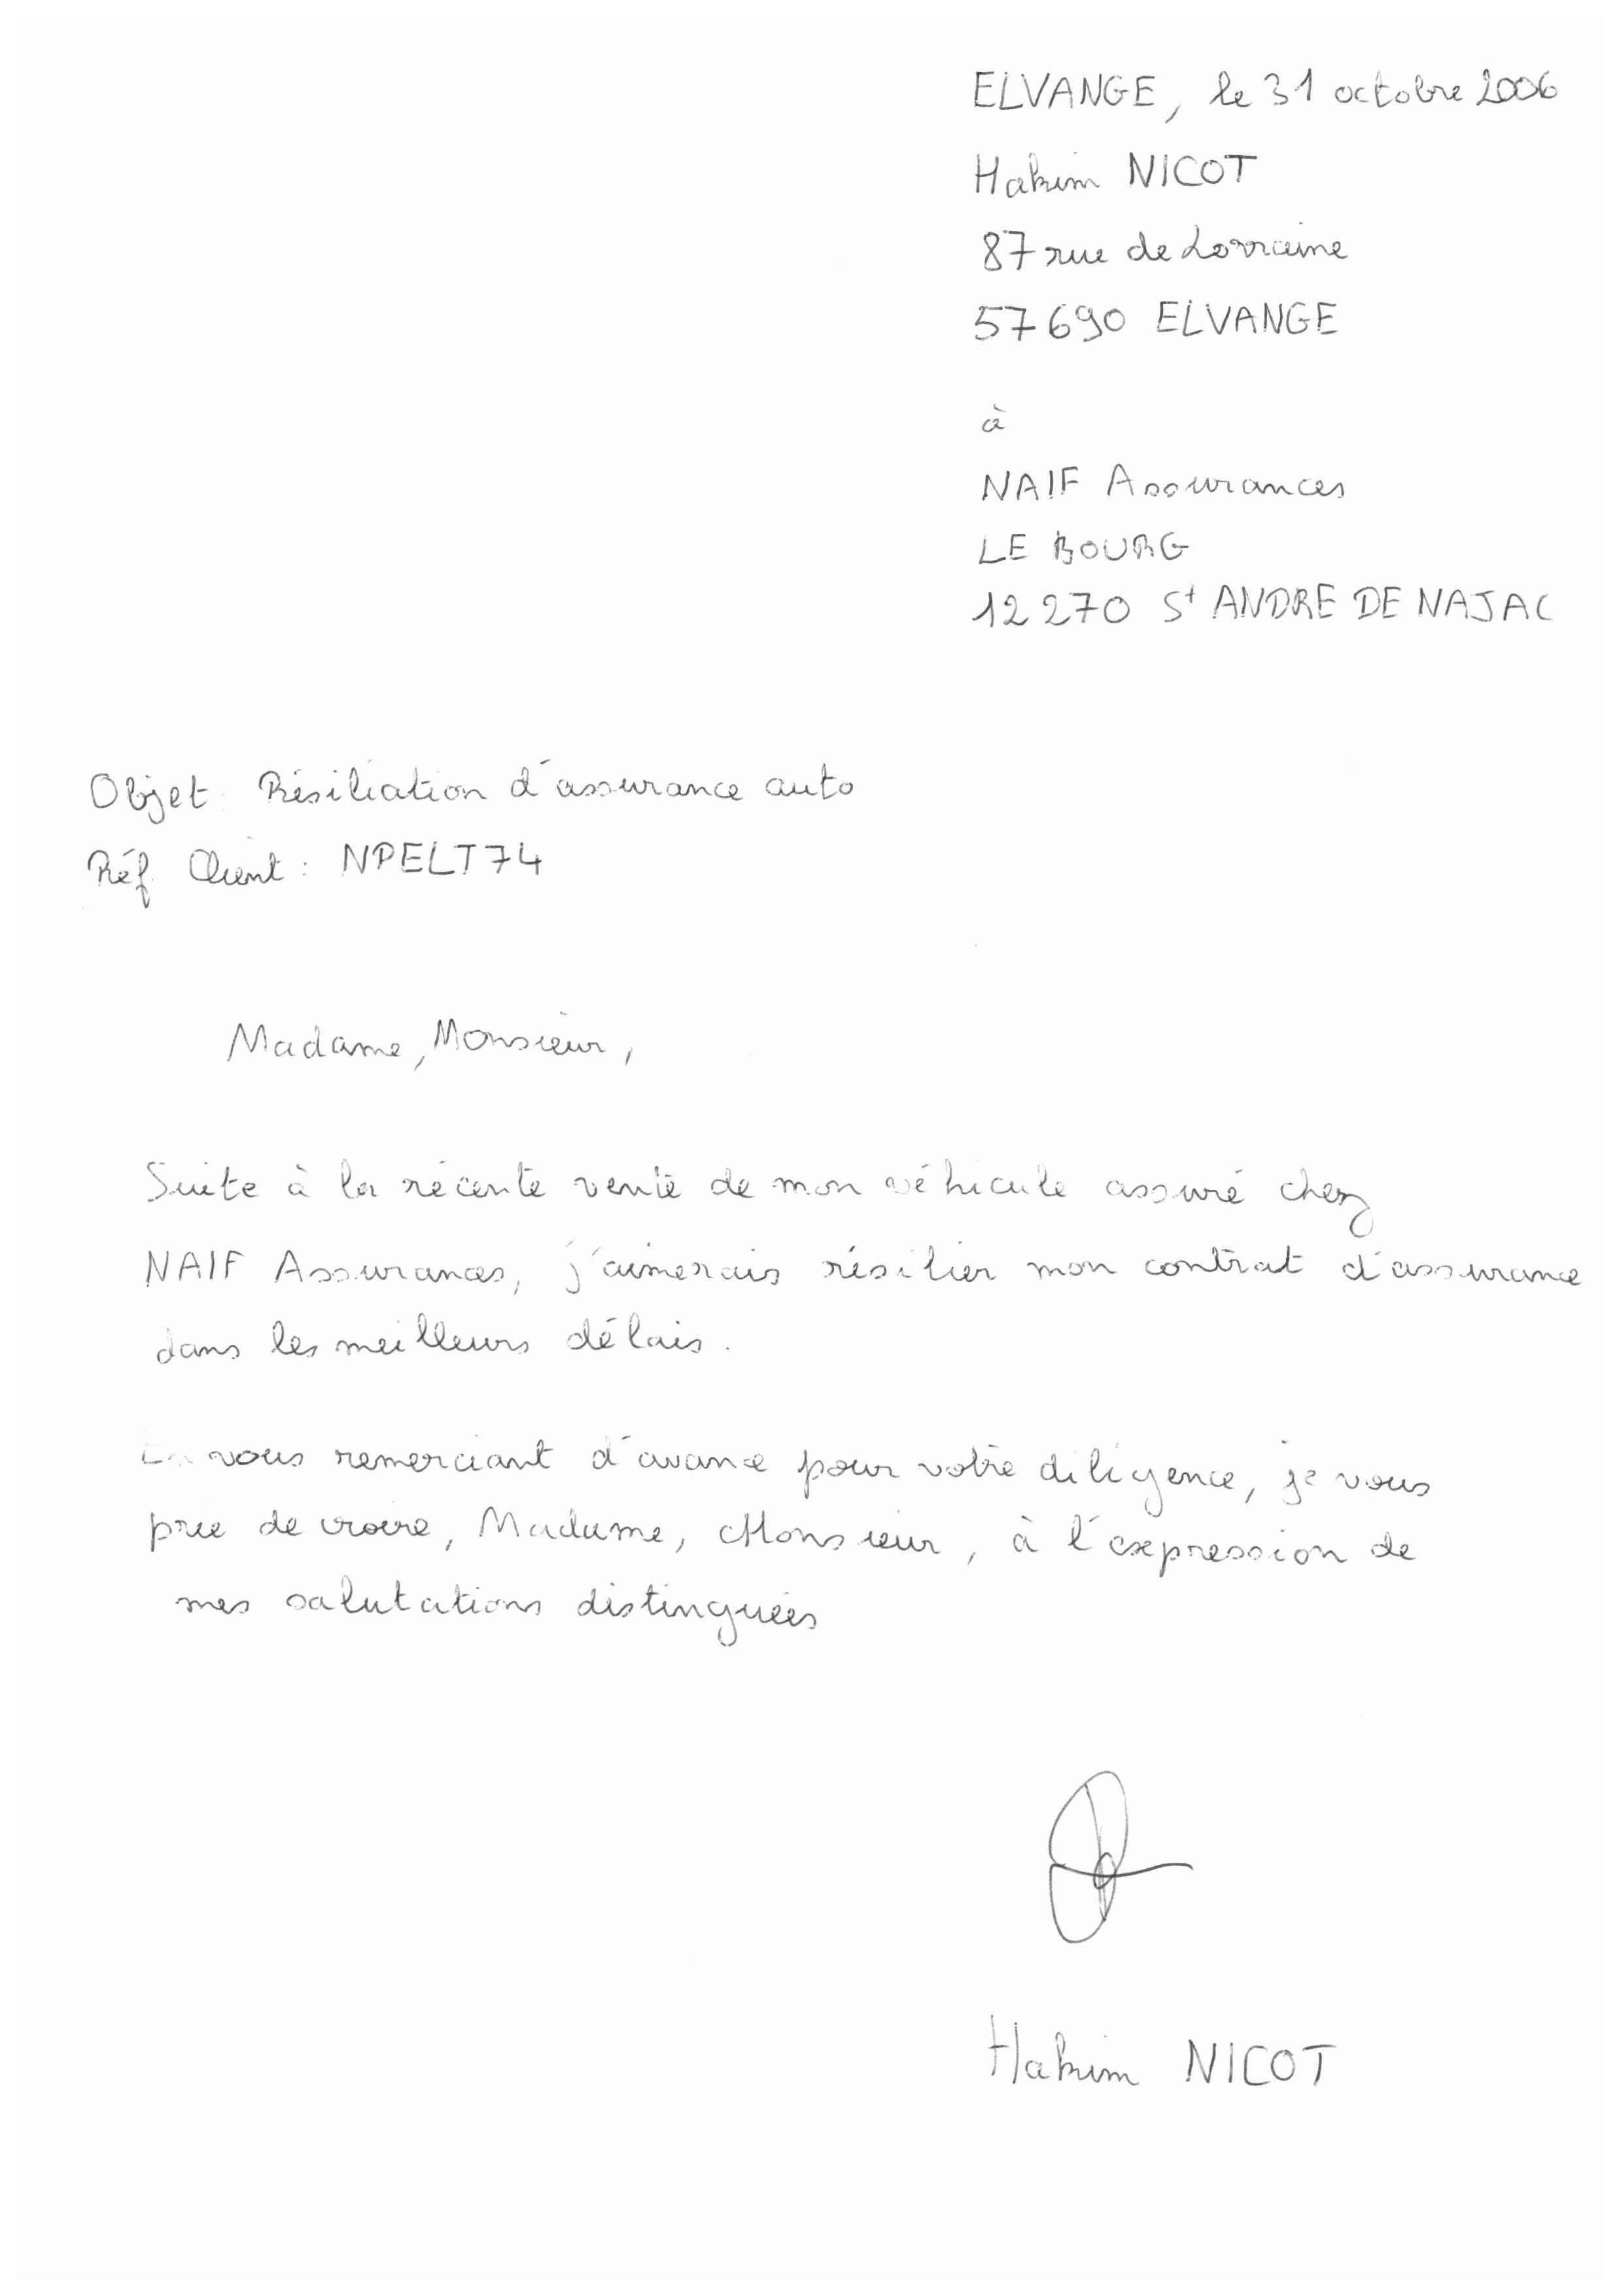 ELVANGE, le 31 octobre 2006
Hakim NICOT
87 rue de Lorraine
57690 ELVANGE
à
NAIF Assurances
LE BOURG
12270 St ANDRE DE NAJAC
Objet : Résiliation d'assurance auto
Réf. Client : NPELT74
Madame, Monsieur,
Suite à la récente vente de mon véhicule assuré chez
NAIF Assurances, j'aimerais résilier mon contrat d'assurance
dans les meilleurs délais.
En vous remerciant d'avance pour votre diligence, je vous
prie de croire, Madame, Monsieur, à l'expression de
mes salutations distinguées
Hakim NICOT